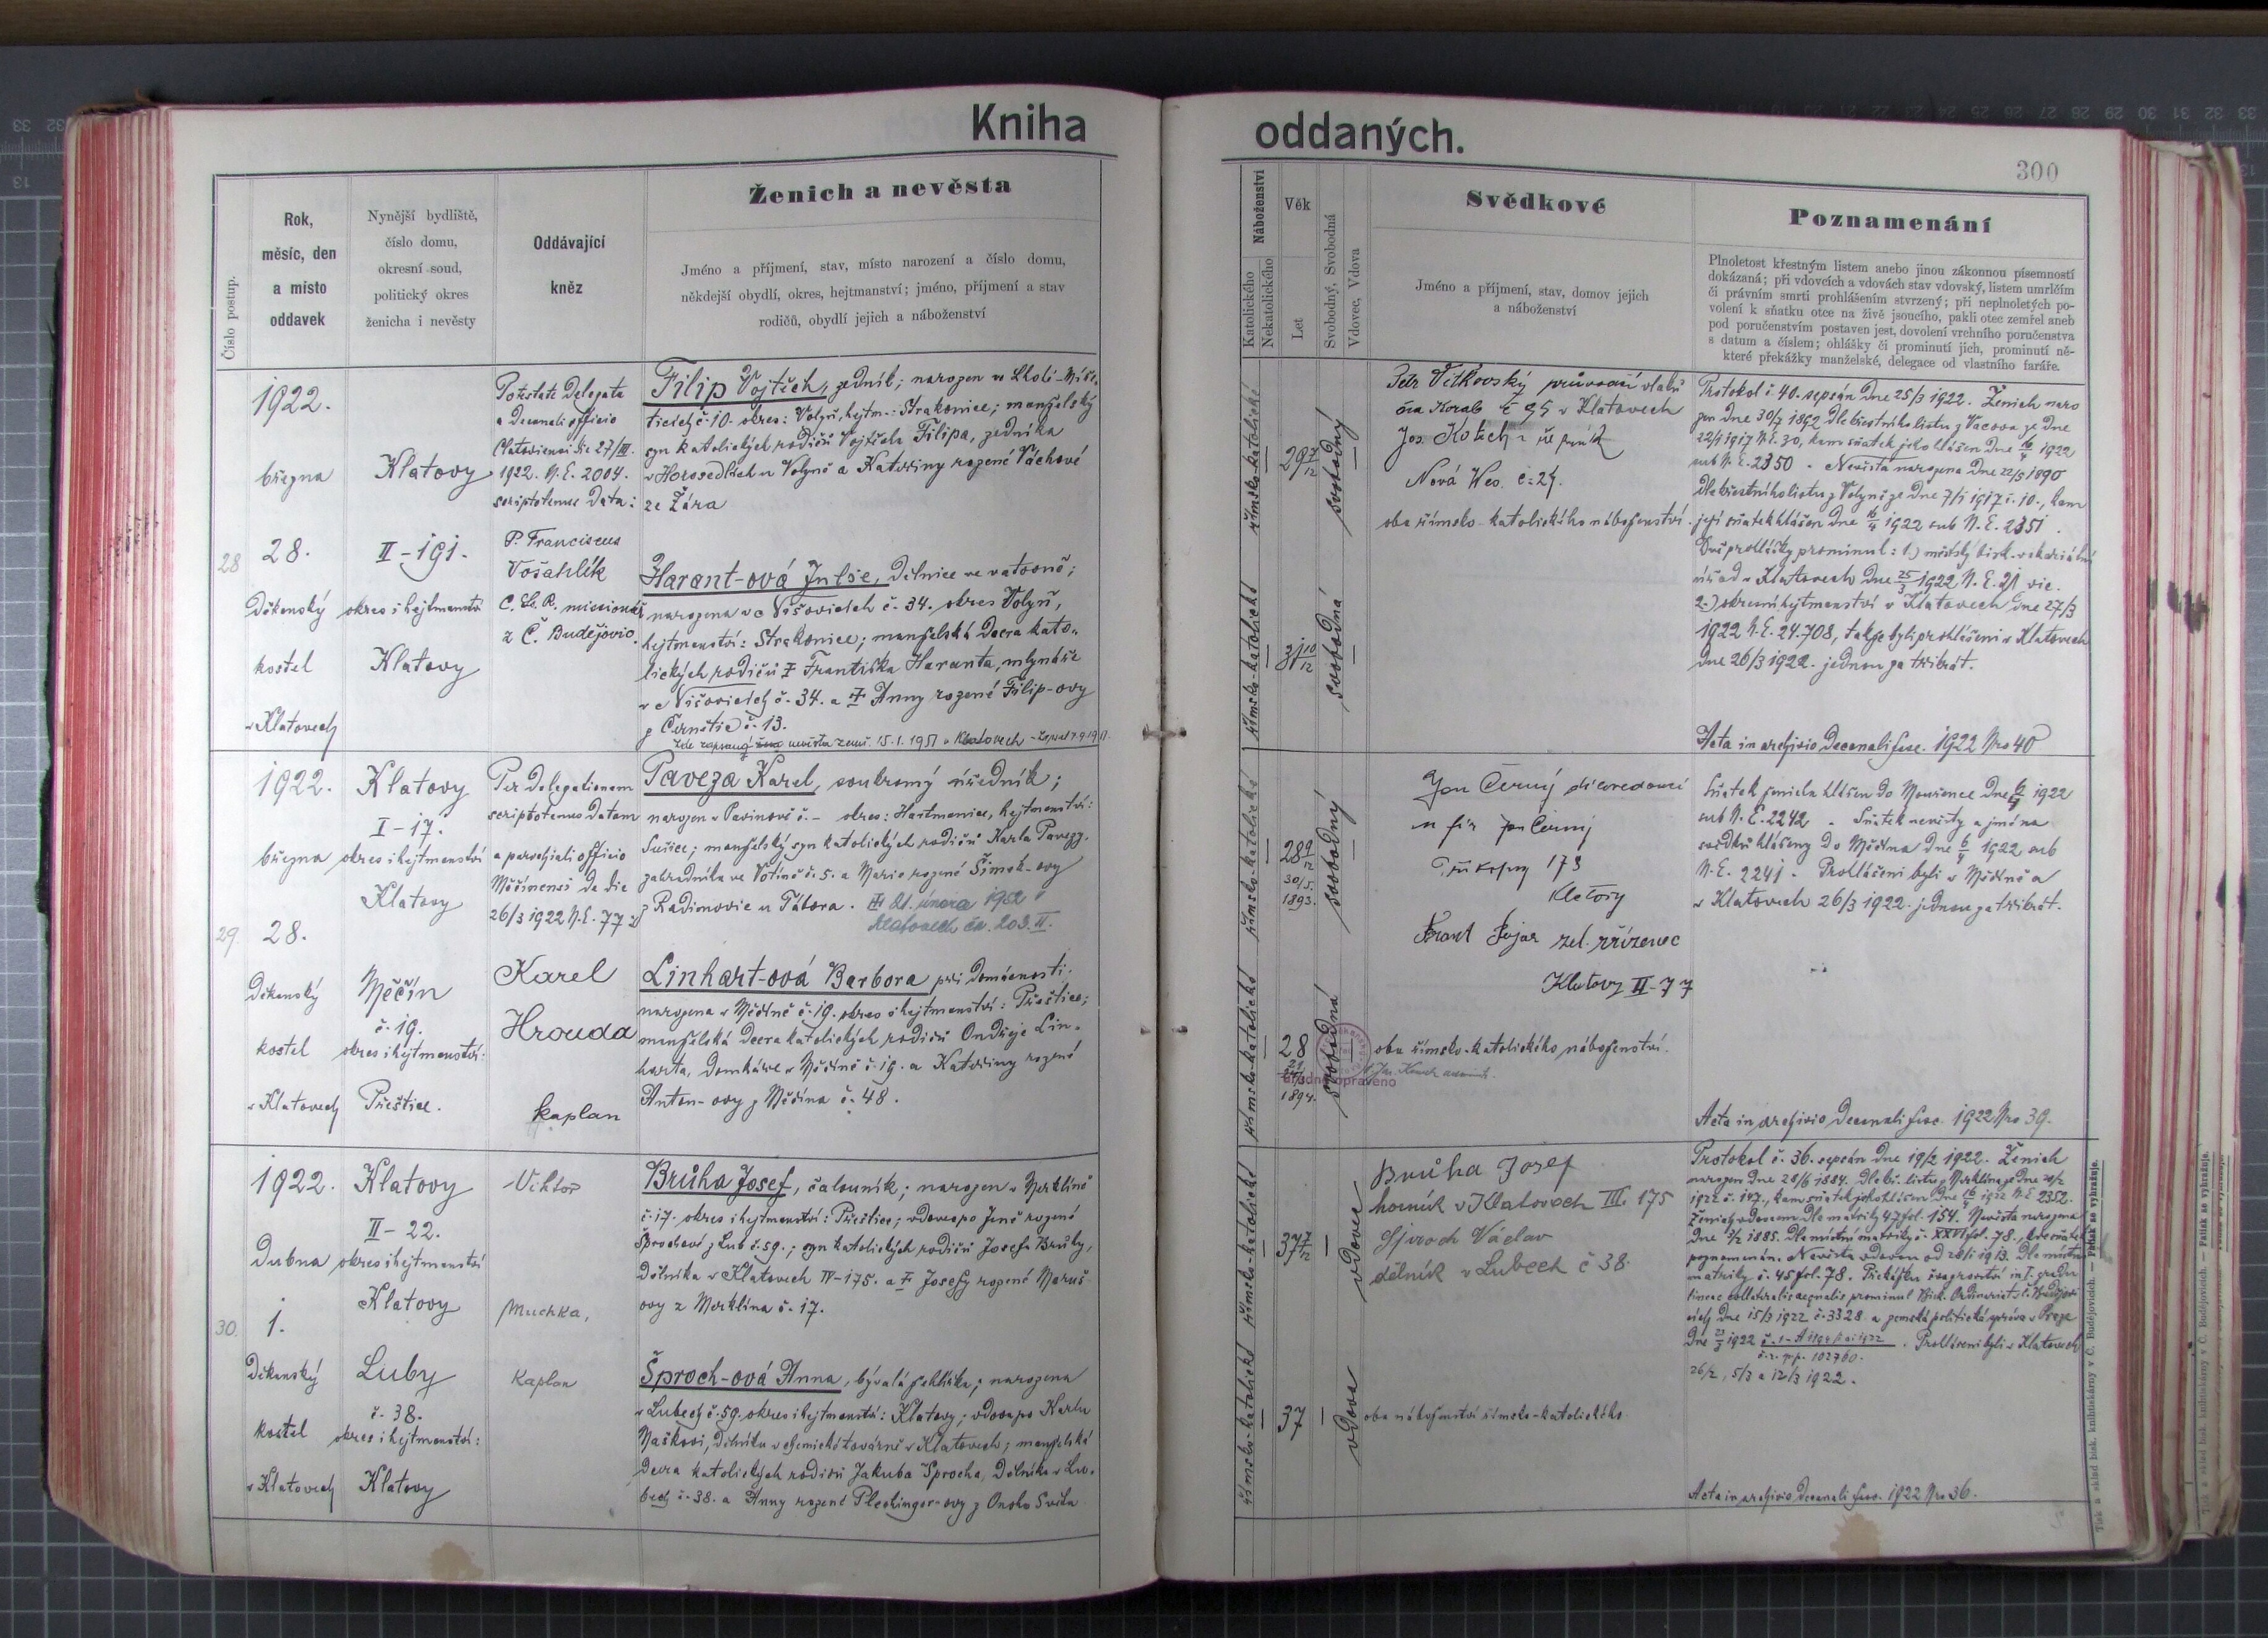 Kniha oddaných.
300
Číslo postup.
Rok,
měsíc, den
a místo
oddavek
Nynější bydliště,
číslo domu,
okresní soud,
politický okres
ženicha i nevěsty
Oddávající
kněz
Ženich a nevěsta
Jméno a příjmení, stav, místo narození a číslo domu,
někdejší obydlí, okres, hejtmanství; jméno, příjmení a stav
rodičů, obydlí jejich a náboženství
Náboženství
Katolického
Nekatolického
Věk
Let
Svobodný, Svobodná
Vdovec, Vdova
Svědkové
Jméno a příjmení, stav, domov jejich
a náboženství
Poznamenání
Plnoletost křestným listem anebo jinou zákonnou písemností
dokázaná; při vdovcích a vdovách stav vdovský, listem umrlčím
či právním smrti prohlášením stvrzený; při neplnoletých po-
volení k sňatku otce na živě jsoucího, pakli otec zemřel aneb
pod poručenstvím postaven jest, dovolení vrchního poručenstva
s datum a číslem; ohlášky či prominutí jich, prominutí ně-
které překážky manželské, delegace od vlastního faráře.
28
1922.
března
28.
Děkanský
kostel
v Klatovech
Klatovy
II-191.
okres i hejtmanství
Klatovy
Potestate Delegata
a Decanali officio
Clatoviensi die 27/III.
1922. N.E. 2004.
scriptotenus data:
P. Franciscus
Vošahlík
C. Ss. R. missionář
z Č. Budějovic.
Filip Vojtěch, zedník; narozen ve Lhotě-
ticích č. 10. okres: Volyň, hejtm.: Strakonice; manželský
syn katolických rodičů Vojtěcha Filipa, zedníka
v Hoosedlích u Volyně a Kateřiny rozené Váchové
ze Žára
Harant-ová Julie, dělnice ve vatovně;
narozena v Nišovicích č. 34. okres Volyň,
hejtmanství: Strakonice; manželská dcera kato-
lických rodičů † Františka Haranta, mlynáře
v Nišovicích č. 34. a † Anny rozené Filip-ovy
z Čerňštic č. 13.
Zde zapsaná nevěsta zemř. 15.1.1951 v Klatovech
římsko-katolické
29 7/12
svobodný
římsko-katolické
31 10/12
svobodná
Petr Vítkovský průvodčí vlaků
Korab č 95 v Klatovech
Jos. Kotěch
Nová Ves. č. 24.
oba římsko-katolického náboženství.
Protokol č. 40. sepsán dne 25/3 1922. Ženich naro
zen dne 30/7 1892 dle křestního listu z Vacova ze dne
22/1 1917 N.E. 30, kam sňatek jeho hlášen dne 16/4 1922
sub N.E. 2350. Nevěsta narozena dne 22/5 1890
dle křestního listu z Volyně ze dne 7/1 1917 č. 10., kam
její sňatek hlášen dne 16/4 1922 sub N.E. 2351.
Dvě prohlášky prominul: 1.) městský bisk. vikariátní
úřad v Klatovech dne 25/3 1922 N.E. 21 vic.
2.) okresní hejtmanství v Klatovech dne 27/3
1922 N.E. 24.708, takže byli prohlášeni v Klatovech
dne 26/3 1922. jednou za třikrát.
Acta in archivio Decanali fasc. 1922 Nro 40
29.
1922.
března
28.
Děkanský
kostel
v Klatovech
Klatovy
I-17.
okres i hejtmanství
Klatovy
Měčín
č. 19.
okres i hejtmanství:
Přeštice.
Per delegationem
scriptotenus datam
a parochiali officio
Měčinensi de die
26/3 1922 N.E. 77
Karel
Hrouda
kaplan
Paveza Karel, soukromý úředník;
narozen v Pavinově č. – okres: Hartmanice, hejtmanství:
Sušice; manželský syn katolických rodičů Karla Pavezy.
zahradníka ve Votíně č. 5. a Marie rozené Šimek-ovy
z Radimovic u Tábora. † 21. února 1982 v
Klatovech čs. 203. II.
Linhart-ová Barbora při domácnosti;
narozena v Měčíně č. 19. okres i hejtmanství: Přeštice;
manželská dcera katolických rodičů Ondřeje Lin-
harta, domkáře v Měčíně č. 19. a Kateřiny rozené
Anton-ovy z Měčína č. 48.
římsko-katolické
28 9/12
30/5.
1893.
svobodný
římsko-katolické
28
1894.
svobodná
úředně opraveno
Jan Černý
u fir Jan Černý
173
Klatovy
Frant Fojar žel. zřízenec
Klatovy II-77
oba římsko-katolického náboženství.
Sňatek ženicha hlášen do Mouřence dne 6/4 1922
sub N.E. 2242. Sňatek nevěsty a jména
svědků hlášeny do Měčína dne 6/4 1922 sub
N.E. 2241. Prohlášeni byli v Měčíně a
v Klatovech 26/3 1922. jednou za třikrát.
Acta in archivio Decanali fasc. 1922 Nro 39.
30.
1922.
Dubna
1.
Děkanský
kostel
v Klatovech
Klatovy
II-22.
okres i hejtmanství
Klatovy
Luby
č. 38.
okres i hejtmanství:
Klatovy
Viktor
Muchka,
Kaplan
Brůha Josef, čalouník; narozen v Merklíně
č. 17. okres i hejtmanství: Přeštice; vdovec po Jeně rozené
Sprochové z Lub č. 59.; syn katolických rodičů Josefa Brůhy,
dělníka v Klatovech IV-175. a † Josefy rozené Maruš-
ovy z Merklína č. 17.
Šproch-ová Anna, bývalá; narozena
v Lubech č. 59. okres i hejtmanství: Klatovy; vdova po Karlu
Maškovi, dělníku v chemické továrně v Klatovech; manželská
dcera katolických rodičů Jakuba Šprocha, dělníka v Lu-
bech č. 38. a Anny rozené Pleckinger-ovy z Onoho Světa.
římsko-katolické
37 7/12
vdovec
římsko-katolické
37
vdova
Brůha Josef
horník v Klatovech III. 175
Václav
dělník v Lubech č 38.
oba náboženství římsko-katolického.
Protokol č. 36. sepsán dne 19/2 1922. Ženich
narozen dne 20/6 1884. dle kř. listu z Merklína ze dne
1922 č. 107., kam sňatek jeho hlášen dne 16/4 1922 N.E. 2352.
Ženich vdovcem dle matriky 47 fol. 154. Nevěsta narozena
dne 3/2 1885. dle místní matriky č. XXVI fol. 78., kde sňatek
poznamenán. Nevěsta vdovou od 1913. Dle místní
matriky č. 45 fol. 78. Překážku švagrovství in I. gradu
lineae collateralis aequalis prominul Bisk. Ordinariát v Č. Budějovi-
cích dne 15/3 1922 č. 3328 a zemská politická správa v Praze
dne 23/3 1922
102760. Prohlášeni byli v Klatovech
26/2, 5/3 a 12/3 1922.
Acta in archivio Decanali fasc. 1922 Nro 36.
Tisk a sklad bisk. knihtiskárny v Č. Budějovicích. — Padělek se vyhražuje.